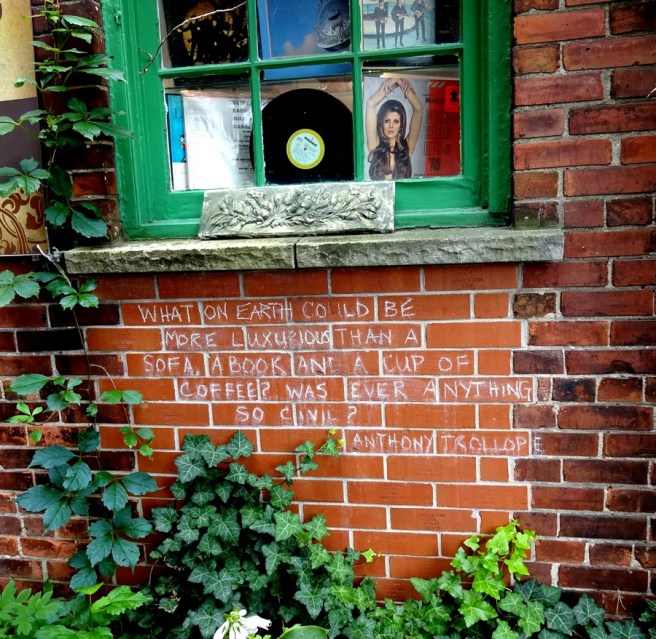 WHAT ON EARTH COULD BE
MORE LUXURIOUS THAN A
SOFA, A BOOK AND A CUP OF
COFFEE? WAS EVER ANYTHING
SO CIVIL?
ANTHONY TROLLOPE